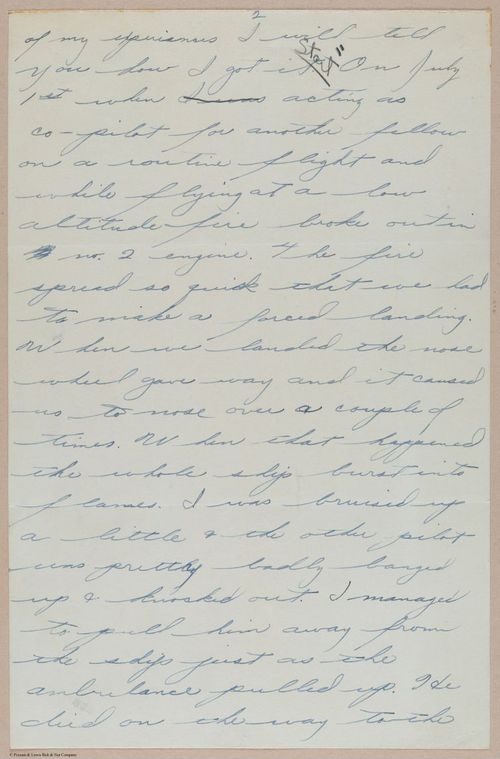 2
of my experiences I will tell
Start "
you how I got it. On July
1st when I was acting as
co-pilot for another fellow
on a routine flight and
while flying at a low
altitude fire broke out in
no. 2 engine. The fire
spread so quick that we had
to make a forced landing.
When we landed the nose
wheel gave way and it caused
us to nose over a couple of
times. When that happened
the whole ship burst into
flames. I was bruised up
a little & the other pilot
was pretty badly banged
up & knocked out. I managed
to pull him away from
the ship just as the
ambulance pulled up. He
died on the way to the
© Putnam & Lewis Bick & Nut Company